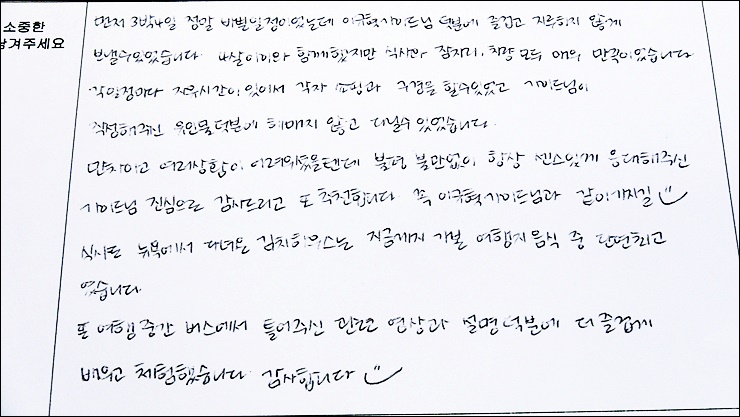 소중한
남겨주세요
먼저 3박4일 정말 바쁜일정이었는데 이규혁가이드님 덕분에 즐겁고 지루하지 않게
보낼수있었습니다 4살아이와 함께했지만 식사와 잠자리, 차량 모두 매우 만족이었습니다
각일정마다 자유시간이 있어서 각자 쇼핑과 구경을 할수있었고 가이드님이
작성해주신 유인물덕분에 헤매지 않고 다닐수 있었습니다.
만차이고 여러상황이 어려우셨을텐데 불평 불만없이 항상 센스있게 응대해주신
가이드님 진심으로 감사드리고 또 추천합니다 꼭 이규혁가이드님과 같이가시길
식사도 뉴욕에서 다녀온 김치하우스는 지금까지 가본 여행지음식 중 단연최고
였습니다
또 여행 중간 버스에서 틀어주신 관련 영상과 설명덕분에 더 즐겁게
배우고 체험했습니다 감사합니다